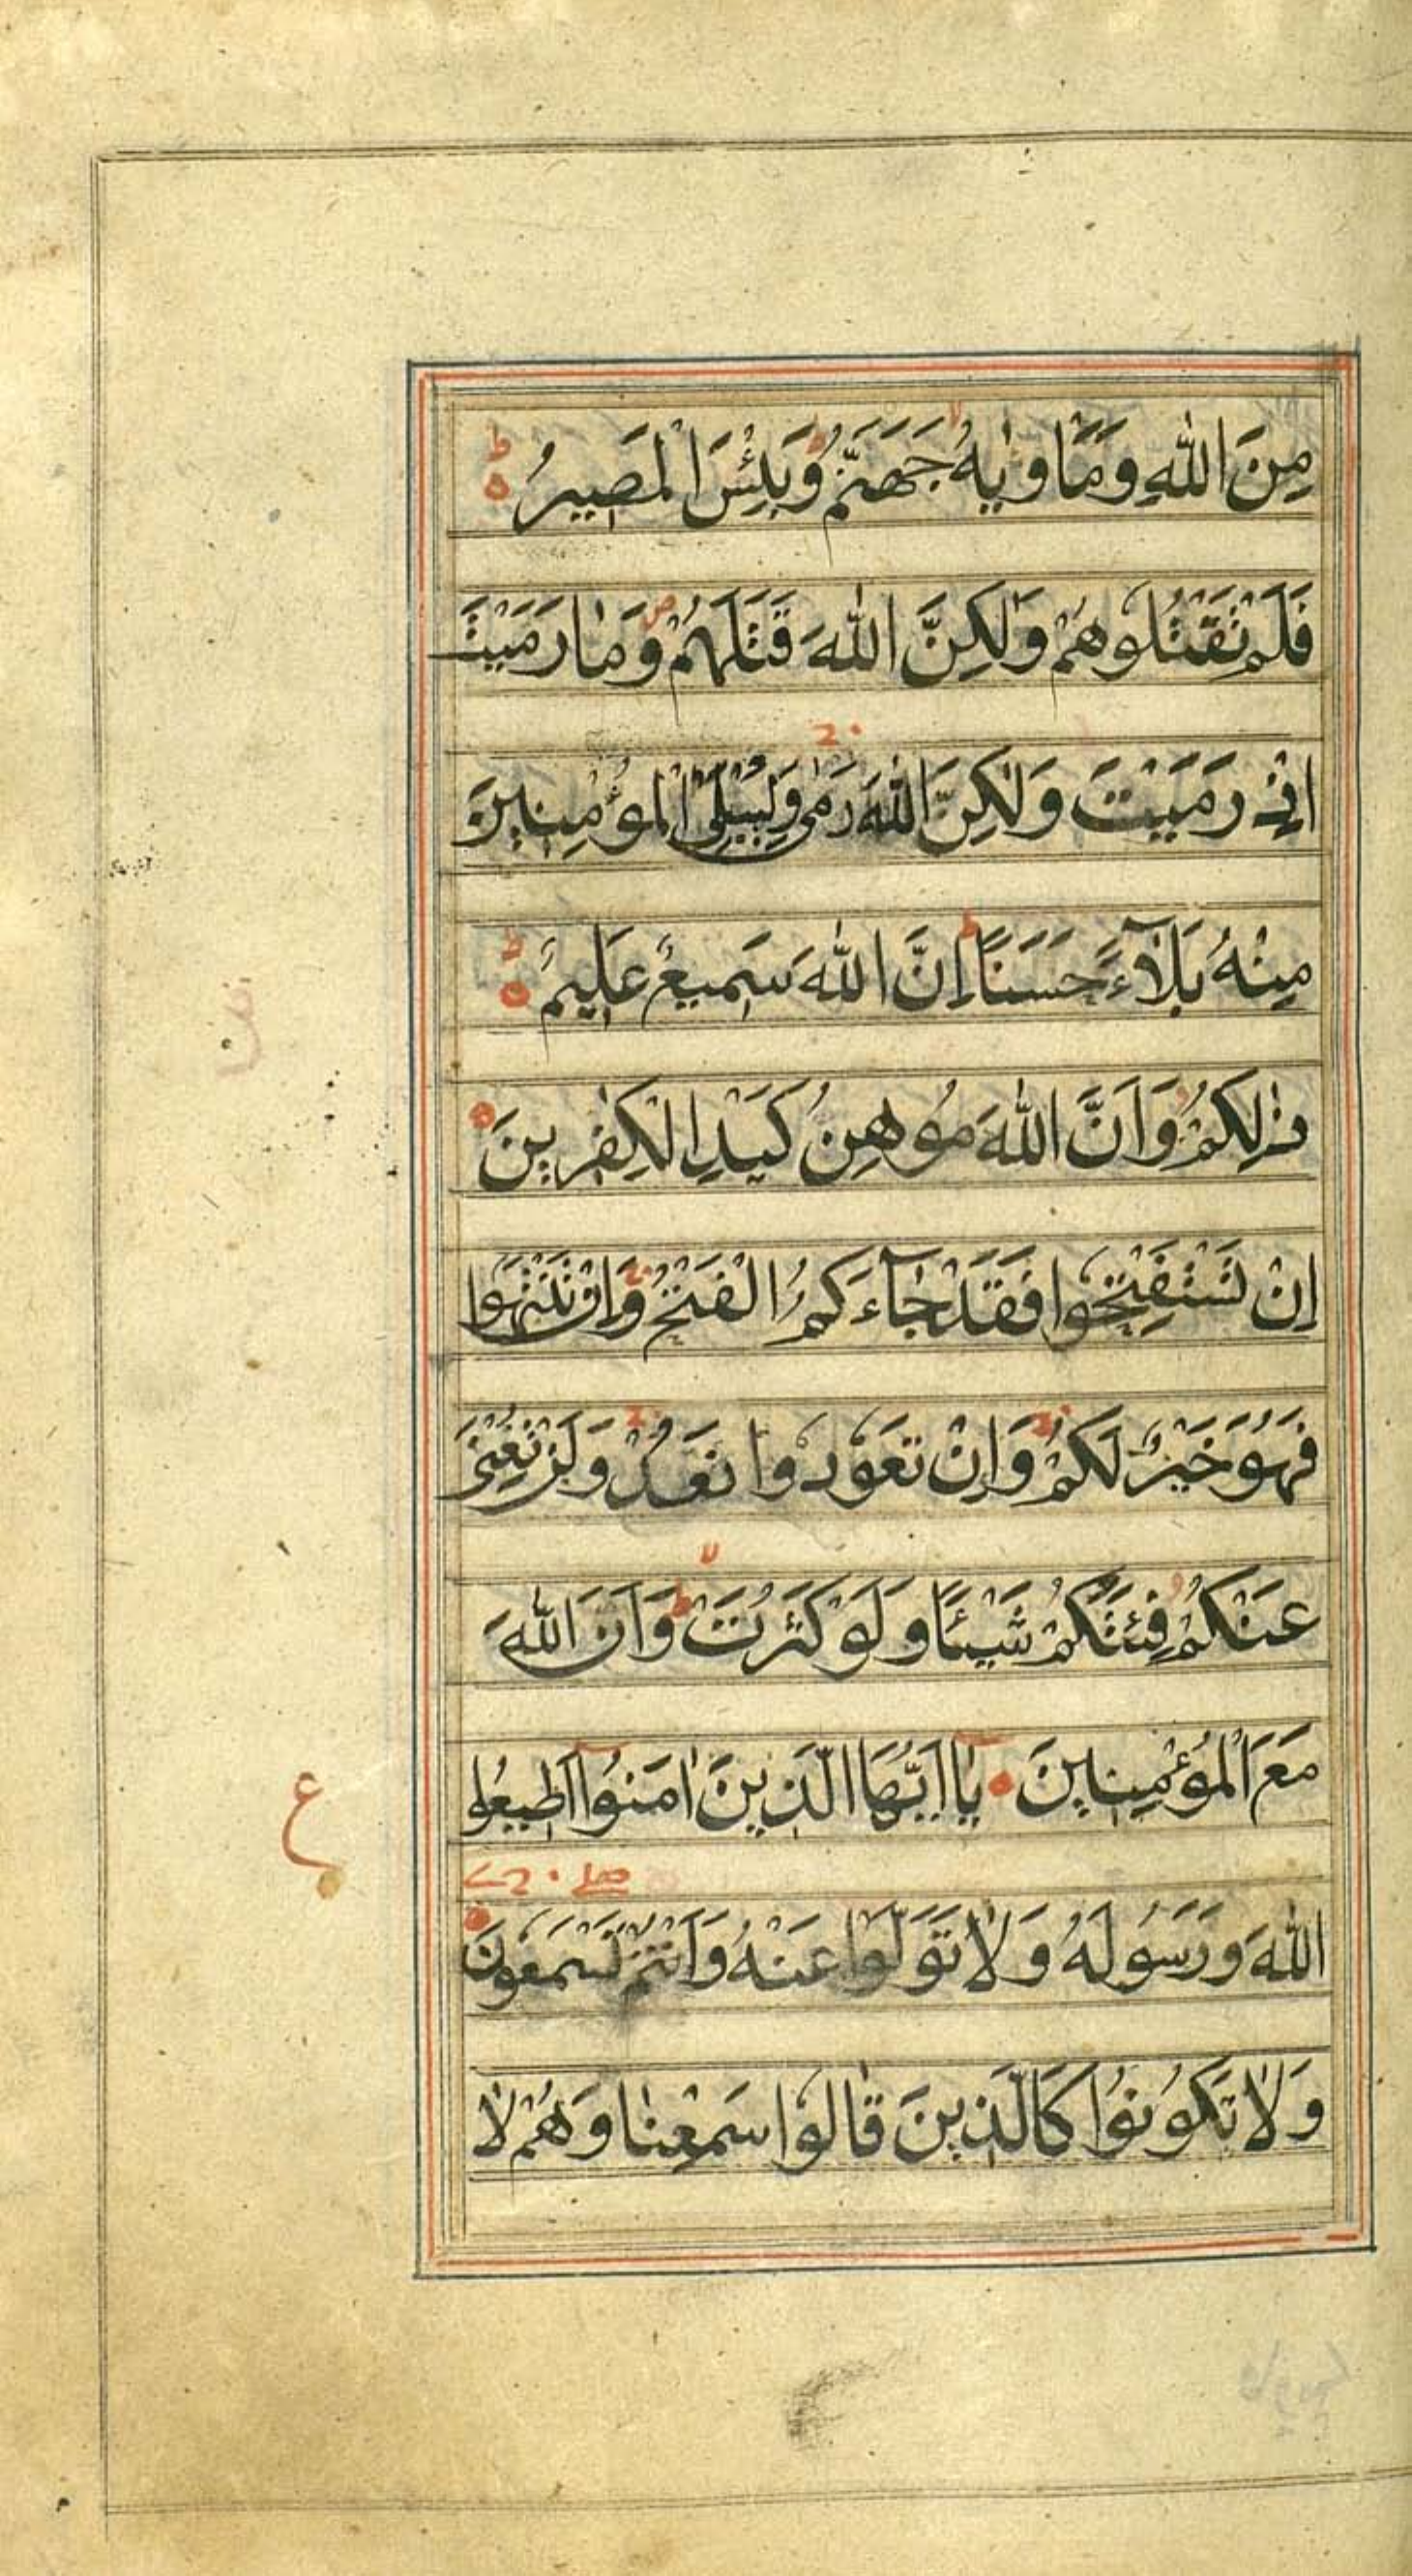 مِنَ اللّٰهِ وَمَاْوٰيهُ جَهَنَّمُ وَبِئْسَ الْمَصِيرُ
فَلَمْ تَقْتُلُوهُمْ وَلٰكِنَّ اللّٰهَ قَتَلَهُمْ وَمٰا رَمَيْتَ
اِذْ رَمَيْتَ وَلٰكِنَّ اللّٰهَ رَمٰى وَلِيُبْلِيَ الْمُؤْمِنِينَ
مِنْهُ بَلَآءً حَسَنًا اِنَّ اللّٰهَ سَمِيعٌ عَلِيمٌ
ذٰلِكُمْ وَاَنَّ اللّٰهَ مُوهِنُ كَيْدِ الْكٰفِرِينَ
اِنْ تَسْتَفْتِحُوا فَقَدْ جٰآءَكُمُ الْفَتْحُ وَاِنْ تَنْتَهُوا
فَهُوَ خَيْرٌ لَكُمْ وَاِنْ تَعُودُوا نَعُدْ وَلَنْ تُغْنِيَ
عَنْكُمْ فِئَتُكُمْ شَيْئًا وَلَوْ كَثُرَتْ وَاَنَّ اللّٰهَ
مَعَ الْمُؤْمِنِينَ يٰا اَيُّهَا الَّذِينَ اٰمَنُوا اَطِيعُوا
اللّٰهَ وَرَسُولَهُ وَلٰا تَوَلَّوْا عَنْهُ وَاَنْتُمْ تَسْمَعُونَ
وَلٰا تَكُونُوا كَالَّذِينَ قٰالُوا سَمِعْنٰا وَهُمْ لٰا
ع